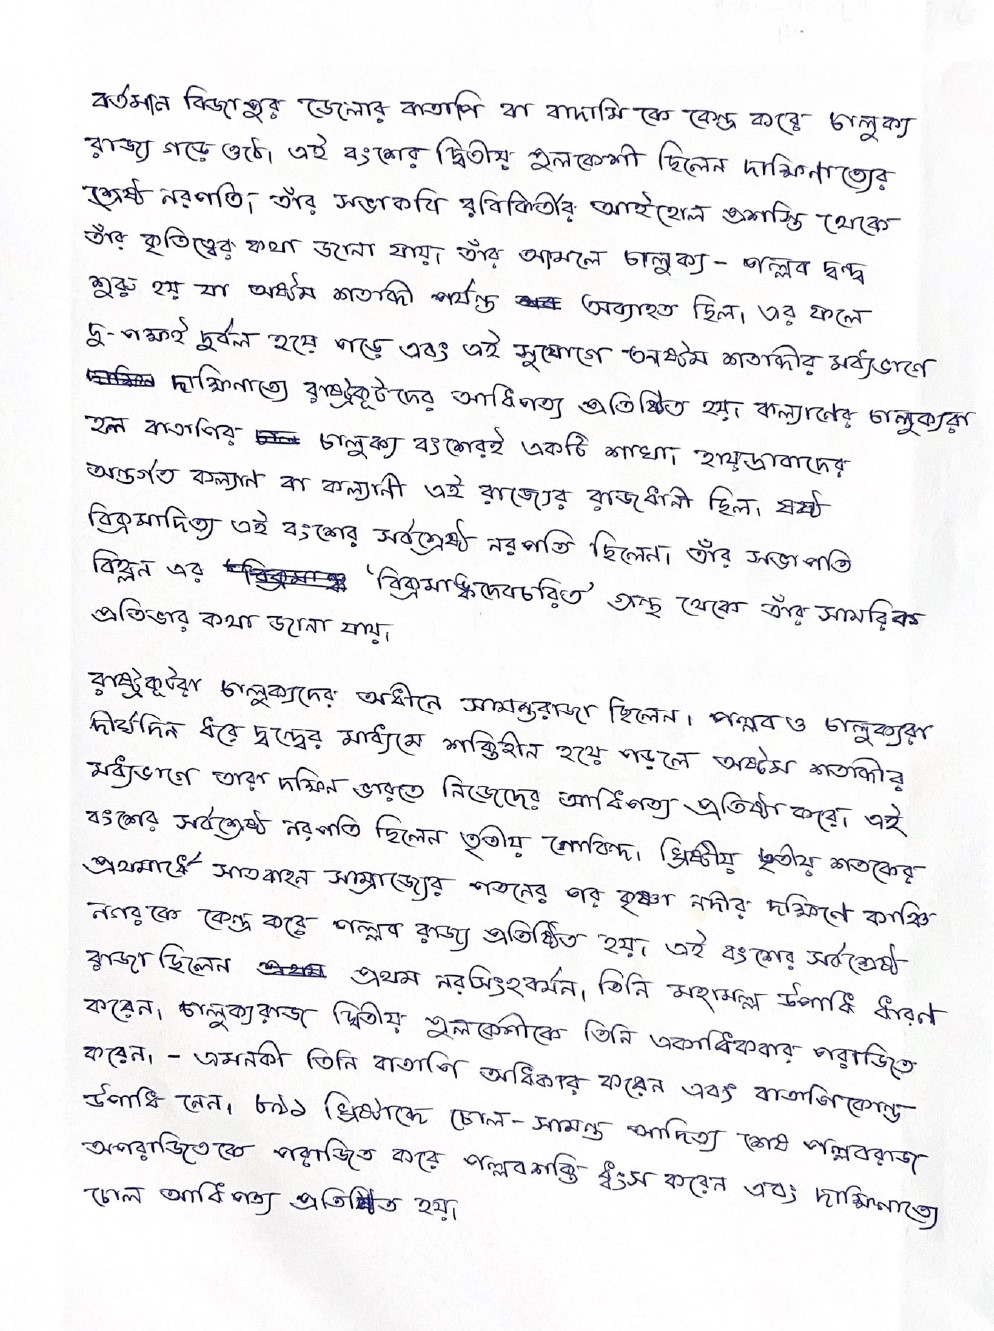 বর্তমান বিজাপুর জেলার বাতাপি বা বাদামি কে কেন্দ্র করে চালুক্য
রাজ্য গড়ে ওঠে। এই বংশের দ্বিতীয় পুলকেশী ছিলেন দাক্ষিণাত্যের
শ্রেষ্ঠ নরপতি, তাঁর সভাকবি রবিকির্তির আইহোল প্রশস্তি থেকে
তাঁর কৃতিত্বের কথা জানা যায়। তাঁর আমলে চালুক্য - পল্লব দ্বন্দ্ব
শুরু হয় যা অষ্টম শতাব্দী পর্যন্ত অব্যাহত ছিল। এর ফলে
দু-পক্ষই দুর্বল হয়ে পড়ে এবং এই সুযোগে অষ্টম শতাব্দীর মধ্যভাগে
দাক্ষিনাত্যে রাষ্ট্রকূটদের আধিপত্য প্রতিষ্ঠিত হয়। কল্যাণের চালুক্যরা
হল বাতাপির চালুক্য বংশেরই একটি শাখা। হায়দ্রাবাদের
অন্তর্গত কল্যান বা কল্যানী এই রাজ্যের রাজধানী ছিল। ষষ্ঠ
বিক্রমাদিত্য এই বংশের সর্বশ্রেষ্ঠ নরপতি ছিলেন। তাঁর সভাপতি
বিহ্লন এর 'বিক্রমাঙ্কদেবচরিত' গ্রন্থ থেকে তাঁর সামরিক
প্রতিভার কথা জানা যায়।
রাষ্ট্রকূটরা চালুক্যদের অধীনে সামন্তরাজা ছিলেন। পল্লব ও চালুক্যরা
দীর্ঘদিন ধরে দ্বন্দ্বের মাধ্যমে শক্তিহীন হয়ে পড়লে অষ্টম শতাব্দীর
মধ্যভাগে তারা দক্ষিন ভারতে নিজেদের আধিপত্য প্রতিষ্ঠা করে। এই
বংশের সর্বশ্রেষ্ঠ নরপতি ছিলেন তৃতীয় গোবিন্দ। খ্রিষ্টীয় তৃতীয় শতকের
প্রথমার্ধে সাতবাহন সাম্রাজ্যের পতনের পর কৃষ্ণা নদীর দক্ষিণে কাঞ্চি
নগরকে কেন্দ্র করে পল্লব রাজ্য প্রতিষ্ঠিত হয়। এই বংশের সর্বশ্রেষ্ঠ
রাজা ছিলেন প্রথম নরসিংহবর্মন, তিনি মহামল্ল উপাধি ধারণ
করেন। চালুক্যরাজ দ্বিতীয় পুলকেশীকে তিনি একাধিকবার পরাজিত
করেন। - এমনকী তিনি বাতাপি অধিকার করেন এবং বাতাপিকোন্ড
উপাধি নেন। ৮৯১ খ্রিষ্টাব্দে চোল - সামন্ত আদিত্য শেষ পল্লবরাজ
অপরাজিতকে পরাজিত করে পল্লবশক্তি ধ্বংস করেন এবং দাক্ষিণাত্যে
চোল আধিপত্য প্রতিষ্ঠিত হয়।